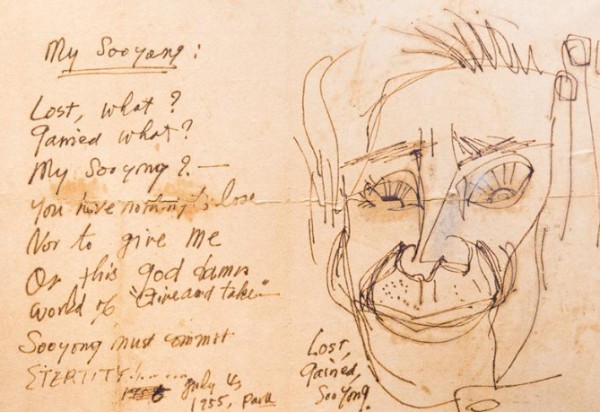 My Sooyong:
Lost, what?
Gained what?
My Sooyong?—
You have nothing to lose
Nor to give me
Or this god damn
world of "Give and take"
Sooyong must commit
ETERTITY!
July 4,
1955, Park
Lost,
Gained,
Sooyong.